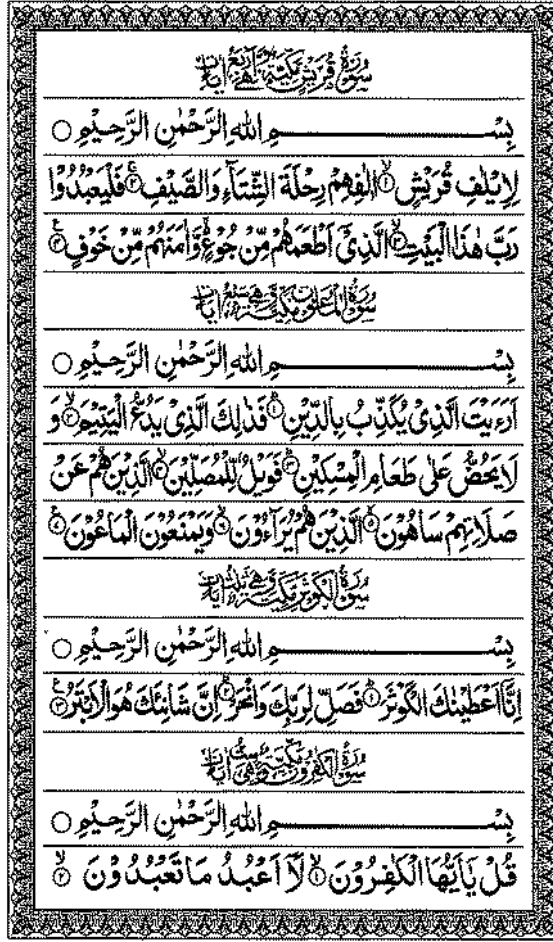 سُوْرَةُ قُرَيْشٍ مَكِّيَّةٌ وَّهِيَ اَرْبَعُ اٰيَاتٍ
بِسْــــــمِ اللّٰهِ الرَّحْمٰنِ الرَّحِيْمِ ○
لِاِيْلٰفِ قُرَيْشٍ ۙ۱ اٖلٰفِهِمْ رِحْلَةَ الشِّتَآءِ وَالصَّيْفِ ۚ۲ فَلْيَعْبُدُوْا
رَبَّ هٰذَا الْبَيْتِ ۙ۳ الَّذِیْۤ اَطْعَمَهُمْ مِّنْ جُوْعٍ ۙ وَّاٰمَنَهُمْ مِّنْ خَوْفٍ ۴
سُوْرَةُ الْمَاعُوْنِ مَكِّيَّةٌ وَّهِيَ سَبْعُ اٰيَاتٍ
بِسْــــــمِ اللّٰهِ الرَّحْمٰنِ الرَّحِيْمِ ○
اَرَءَيْتَ الَّذِیْ يُكَذِّبُ بِالدِّيْنِ ۱ فَذٰلِكَ الَّذِیْ يَدُعُّ الْيَتِيْمَ ۙ۲ وَ
لَا يَحُضُّ عَلٰى طَعَامِ الْمِسْكِيْنِ ۳ فَوَيْلٌ لِّلْمُصَلِّيْنَ ۙ۴ الَّذِيْنَ هُمْ عَنْ
صَلَاتِهِمْ سَاهُوْنَ ۙ۵ الَّذِيْنَ هُمْ يُرَآءُوْنَ ۙ۶ وَيَمْنَعُوْنَ الْمَاعُوْنَ ۷
سُوْرَةُ الْكَوْثَرِ مَكِّيَّةٌ وَّهِيَ ثَلٰثُ اٰيَاتٍ
بِسْــــــمِ اللّٰهِ الرَّحْمٰنِ الرَّحِيْمِ ○
اِنَّاۤ اَعْطَيْنٰكَ الْكَوْثَرَ ۱ فَصَلِّ لِرَبِّكَ وَانْحَرْ ۲ اِنَّ شَانِئَكَ هُوَ الْاَبْتَرُ ۳
سُوْرَةُ الْكٰفِرُوْنَ مَكِّيَّةٌ وَّهِيَ سِتُّ اٰيَاتٍ
بِسْــــــمِ اللّٰهِ الرَّحْمٰنِ الرَّحِيْمِ ○
قُلْ يٰۤاَيُّهَا الْكٰفِرُوْنَ ۙ۱ لَاۤ اَعْبُدُ مَا تَعْبُدُوْنَ ۙ۲